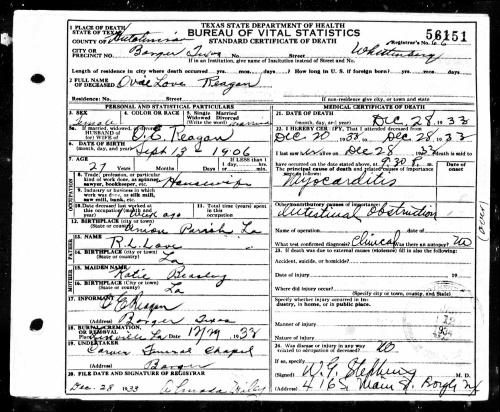 TEXAS STATE DEPARTMENT OF HEALTH
BUREAU OF VITAL STATISTICS
STANDARD CERTIFICATE OF DEATH
56151
Registrar's No. 6
1 PLACE OF DEATH
COUNTY OF Hutchinson
CITY OR PRECINCT NO. Borger Texas
If in an Institution, give Name of Institution instead of Street and No.
Length of residence in city where death occurred yrs. mos. days. How long in U. S. if foreign born? yrs. mos. days.
2 FULL NAME OF DECEASED Ovie Love Reagan
Residence: No. Street
If non-residence give city, or town, and state
PERSONAL AND STATISTICAL PARTICULARS
3. SEX Female
4. COLOR OR RACE
5. Single Married Widowed Divorced (Write the word) married
5a. If married, widowed, or divorced HUSBAND of (or) WIFE of O E Reagan
6. DATE OF BIRTH (month, day, year) Sept 13 - 1906
7. AGE 27 Years Months Days
If LESS than 1 day hrs. or min.
8 Trade, profession, or particular kind of work done, as spinner, sawyer, bookkeeper, etc. Housewife
9 Industry or business in which work was done, as silk mill, saw mill, bank, etc.
10. Date deceased last worked at this occupation (month and year) 1 week ago
11. Total time (years) spent in this occupation
12. BIRTHPLACE (State or county) Union Parrish La
13. NAME R. L. Love
14. BIRTHPLACE (State or county) La
15. MAIDEN NAME Katie Beasley
16. BIRTHPLACE (State or county) La
17. INFORMANT O E Reagan
(Address) Borger Texas
18. BURIAL, CREMATION, OR REMOVAL La Date 12/29 1933
19. UNDERTAKER Carver Funeral Chapel
(Address) Borger
20. FILE DATE AND SIGNATURE OF REGISTRAR
Dec 28 1933
MEDICAL PARTICULARS
21. DATE OF DEATH (month, day, and year) Dec. 28, 1933
22. I HEREBY CERTIFY, That I attended deceased from
Dec 20 1933 to Dec 28 1933
I last saw Dec 28 1933 death is said to have
occurred on the date stated above, at 9:30 P.m.
The principal cause of death and related causes of importance were as follows:
Myocarditis
Other contributory causes of importance:
Intestinal Obstruction
Name of operation Date of
What test confirmed diagnosis? Clinical Was there an autopsy? No
23. If death was due to external causes (violence) fill in also the following:
Accident, suicide, or homicide?
Date of injury 19
Where did injury occur?
(Specify city or town, county, and State)
Specify whether injury occurred in industry, in home, or in public place.
Manner of injury
Nature of injury
24. Was disease or injury in any way related to occupation of deceased? No
If so, specify
(Signed) M. D.
(Address) 416 S Main St. Borger Tx
(over)